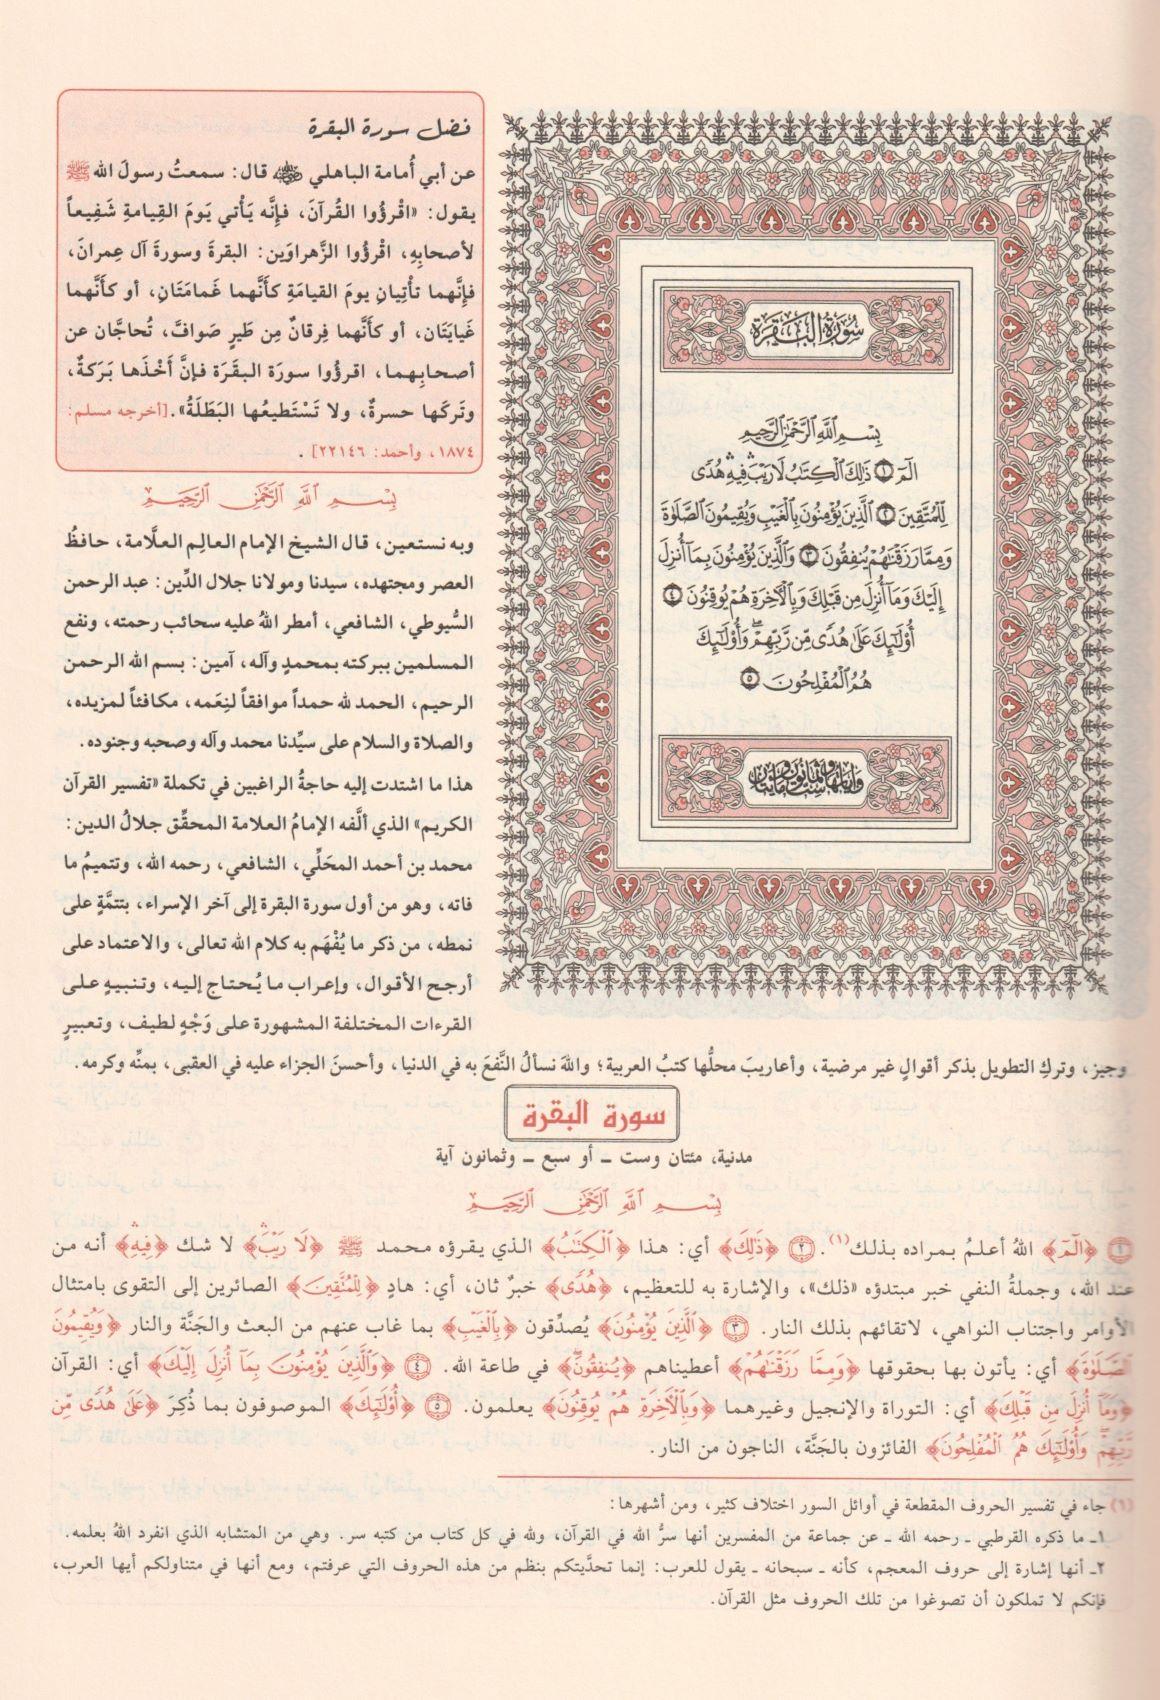 فضل سورة البقرة
عن أبي أُمامة الباهلي ﵁ قال: سمعتُ رسولَ الله ﷺ
يقول: «اقْرؤُوا القُرآنَ، فإِنَّه يَأْتي يَومَ القِيامةِ شَفِيعاً
لأصحابِهِ، اقْرؤُوا الزَّهراوَين: البقرةَ وسورةَ آل عِمرانَ،
فإِنَّهما تأْتِيانِ يومَ القيامَةِ كأَنَّهما غَمامَتَانِ، أو كأَنَّهما
غَيايَتَان، أو كأَنَّهما فِرقانٌ مِن طَيرٍ صَوافَّ، تُحاجَّان عن
أصحابِهما، اقرؤُوا سورَة البقَرَة فإنَّ أَخْذَها بَرَكةٌ،
وتَركَها حسرةٌ، ولا تَسْتَطيعُها البَطَلَةُ». [أخرجه مسلم:
١٨٧٤، وأحمد: ٢٢١٤٦].
سُورَةُ البَقَرَة
بِسْمِ ٱللَّهِ ٱلرَّحْمَٰنِ ٱلرَّحِيمِ
الٓمٓ ١ ذَٰلِكَ ٱلْكِتَٰبُ لَا رَيْبَ ۛ فِيهِ ۛ هُدًى
لِّلْمُتَّقِينَ ٢ ٱلَّذِينَ يُؤْمِنُونَ بِٱلْغَيْبِ وَيُقِيمُونَ ٱلصَّلَوٰةَ
وَمِمَّا رَزَقْنَٰهُمْ يُنفِقُونَ ٣ وَٱلَّذِينَ يُؤْمِنُونَ بِمَآ أُنزِلَ
إِلَيْكَ وَمَآ أُنزِلَ مِن قَبْلِكَ وَبِٱلْءَاخِرَةِ هُمْ يُوقِنُونَ ٤
أُو۟لَٰٓئِكَ عَلَىٰ هُدًى مِّن رَّبِّهِمْ ۖ وَأُو۟لَٰٓئِكَ
هُمُ ٱلْمُفْلِحُونَ ٥
وآياتها ست وثمانون ومائتان
بِسْمِ اللَّهِ الرَّحْمَٰنِ الرَّحِيمِ
وبه نستعين، قال الشيخ الإمام العالِم العلَّامة، حافظُ
العصر ومجتهده، سيدنا ومولانا جلال الدِّين: عبد الرحمن
السُّيوطي، الشافعي، أمطر اللهُ عليه سحائب رحمته، ونفع
المسلمين ببركته بمحمدٍ وآله، آمين: بسم الله الرحمن
الرحيم، الحمد لله حمداً موافقاً لنِعَمه، مكافئاً لمزيده،
والصلاة والسلام على سيِّدنا محمد وآله وصحبه وجنوده.
هذا ما اشتدت إليه حاجةُ الراغبين في تكملة «تفسير القرآن
الكريم» الذي ألَّفه الإمامُ العلامة المحقِّق جلالُ الدين:
محمد بن أحمد المحَلِّي، الشافعي، رحمه الله، وتتميمُ ما
فاته، وهو من أول سورة البقرة إلى آخر الإسراء، بتتمَّةٍ على
نمطه، من ذكر ما يُفْهَم به كلام الله تعالى، والاعتماد على
أرجح الأقوال، وإعراب ما يُحتاج إليه، وتنبيهٍ على
القرءات المختلفة المشهورة على وَجْهٍ لطيف، وتعبيرٍ
وجيز، وتركِ التطويل بذكر أقوالٍ غير مرضية، وأعاريبَ محلُّها كتبُ العربية؛ واللهَ نسألُ النَّفعَ به في الدنيا، وأحسنَ الجزاء عليه في العقبى، بمنِّه وكرمه.
سورة البقرة
مدنية، مئتان وست ـ أو سبع ـ وثمانون آية
بِسْمِ اللَّهِ الرَّحْمَٰنِ الرَّحِيمِ
١ ﴿الٓمٓ﴾ اللهُ أعلمُ بمراده بذلك(١). ٢ ﴿ذَٰلِكَ﴾ أي: هذا ﴿ٱلْكِتَٰبُ﴾ الذي يقرؤه محمد ﷺ ﴿لَا رَيْبَ ۛ﴾ لا شك ﴿فِيهِ ۛ﴾ أنه من
عند الله، وجملةُ النفي خبر مبتدؤه «ذلك»، والإشارة به للتعظيم، ﴿هُدًى﴾ خبرٌ ثان، أي: هادٍ ﴿لِّلْمُتَّقِينَ﴾ الصائرين إلى التقوى بامتثال
الأوامر واجتناب النواهي، لاتقائهم بذلك النار. ٣ ﴿ٱلَّذِينَ يُؤْمِنُونَ﴾ يُصدِّقون ﴿بِٱلْغَيْبِ﴾ بما غاب عنهم من البعث والجَنَّة والنار ﴿وَيُقِيمُونَ
ٱلصَّلَوٰةَ﴾ أي: يأتون بها بحقوقها ﴿وَمِمَّا رَزَقْنَٰهُمْ﴾ أعطيناهم ﴿يُنفِقُونَ﴾ في طاعة الله. ٤ ﴿وَٱلَّذِينَ يُؤْمِنُونَ بِمَآ أُنزِلَ إِلَيْكَ﴾ أي: القرآن
﴿وَمَآ أُنزِلَ مِن قَبْلِكَ﴾ أي: التوراة والإنجيل وغيرهما ﴿وَبِٱلْءَاخِرَةِ هُمْ يُوقِنُونَ﴾ يعلمون. ٥ ﴿أُو۟لَٰٓئِكَ﴾ الموصوفون بما ذُكِرَ ﴿عَلَىٰ هُدًى مِّن
رَّبِّهِمْ ۖ وَأُو۟لَٰٓئِكَ هُمُ ٱلْمُفْلِحُونَ﴾ الفائزون بالجَنَّة، الناجون من النار.
(١) جاء في تفسير الحروف المقطعة في أوائل السور اختلاف كثير، ومن أشهرها:
١ـ ما ذكره القرطبي ـ رحمه الله ـ عن جماعة من المفسرين أنها سرُّ الله في القرآن، ولله في كل كتاب من كتبه سر. وهي من المتشابه الذي انفرد اللهُ بعلمه.
٢ـ أنها إشارة إلى حروف المعجم، كأنه ـ سبحانه ـ يقول للعرب: إنما تحدَّيتكم بنظم من هذه الحروف التي عرفتم، ومع أنها في متناولكم أيها العرب،
فإنكم لا تملكون أن تصوغوا من تلك الحروف مثل القرآن.